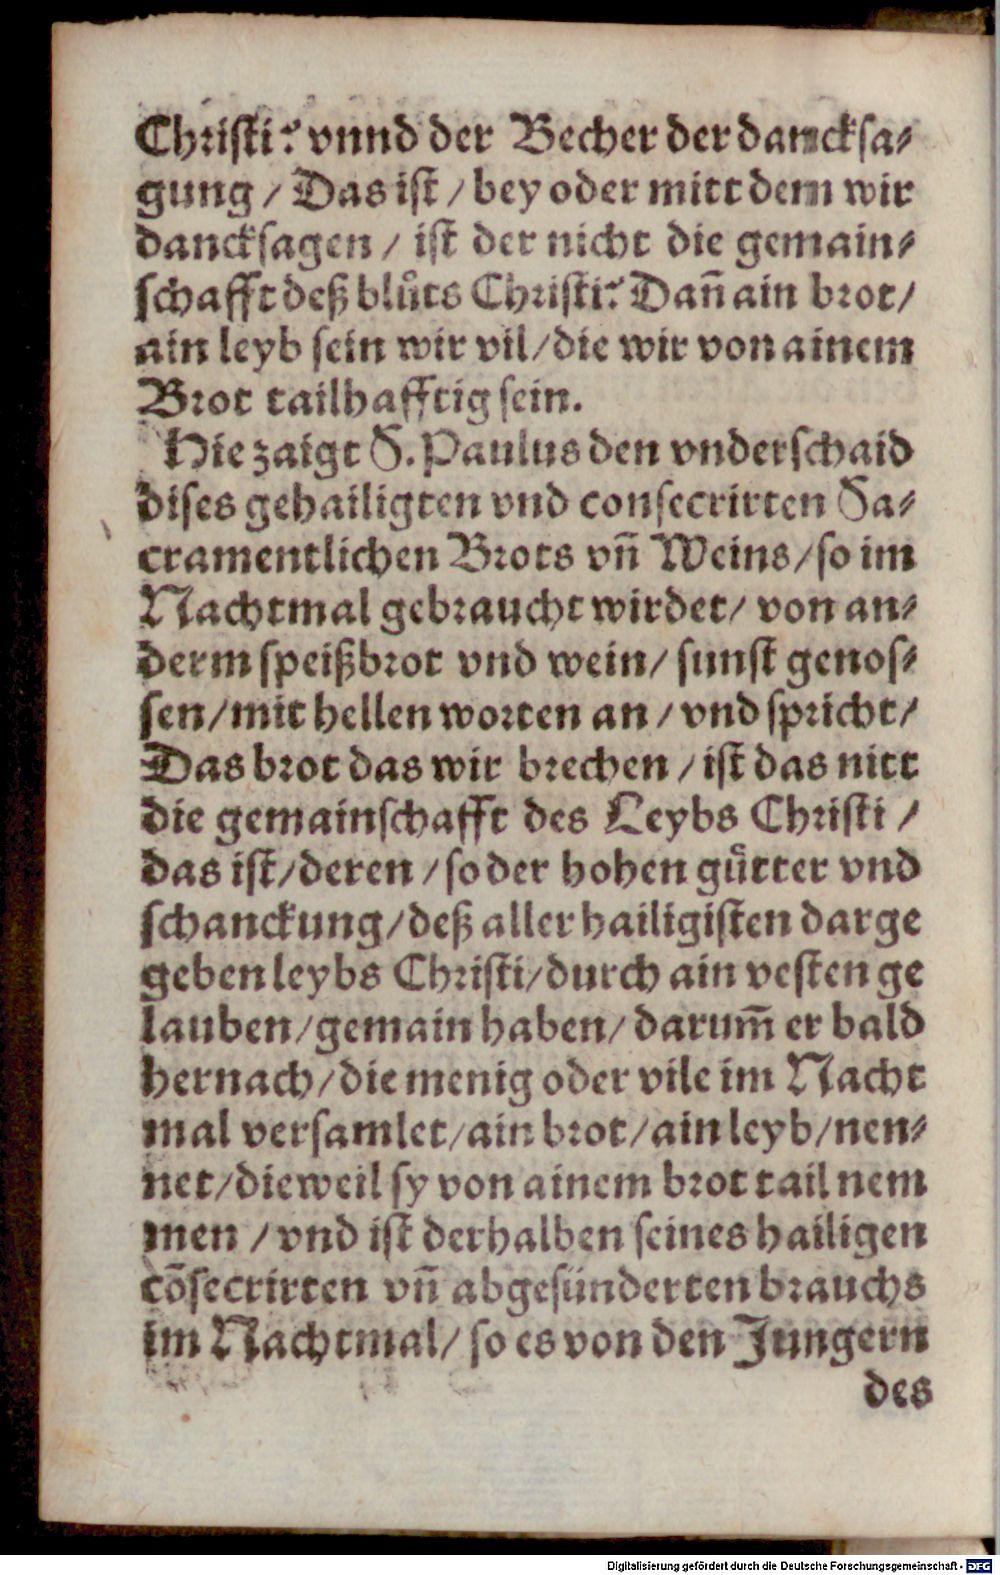 Christi? vnnd der Becher der dancksa-
gung / Das ist / bey oder mitt dem wir
dancksagen / ist der nicht die gemain-
schafft deß blůts Christi? Dañ ain brot/
ain leyb sein wir vil/die wir von ainem
Brot tailhafftig sein.
Hie zaigt S. Paulus den vnderschaid
dises gehailigten vnd consecrirten Sa-
cramentlichen Brots vñ Weins/so im
Nachtmal gebraucht wirdet/ von an-
derm speißbrot vnd wein/ sunst genos-
sen/mit hellen worten an / vnd spricht/
Das brot das wir brechen / ist das nitt
die gemainschafft des Leybs Christi /
das ist/deren /so der hohen gůtter vnd
schanckung/deß aller hailigisten darge
geben leybs Christi/durch ain vesten ge
lauben/gemain haben/ darum̃ er bald
hernach/die menig oder vile im Nacht
mal versamlet/ain brot/ain leyb/nen-
net/dieweil sy von ainem brot tail nem
men / vnd ist derhalben seines hailigen
cõsecrirten vñ abgesünderten brauchs
im Nachtmal/ so es von den Jungern
des
Digitalisierung gefördert durch die Deutsche Forschungsgemeinschaft - DFG